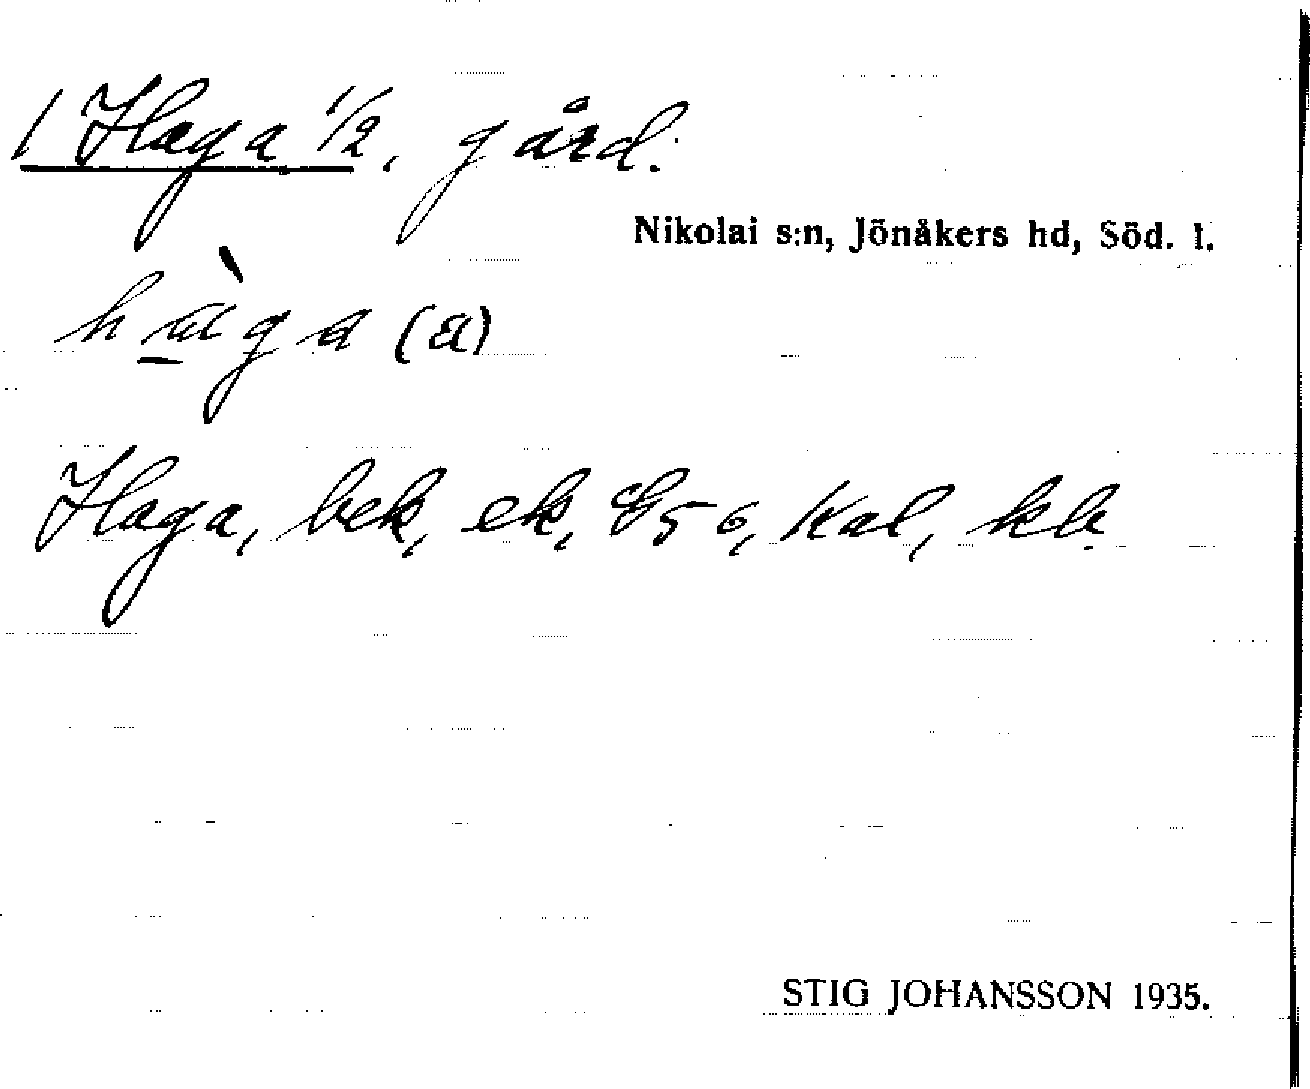 1 Haga 1/2, gård.
Nikolai s:n, Jönåkers hd, Söd. l.
hàga (a)
Haga, bek, ek, G56, Kal, kb.
STIG JOHANSSON 1935.